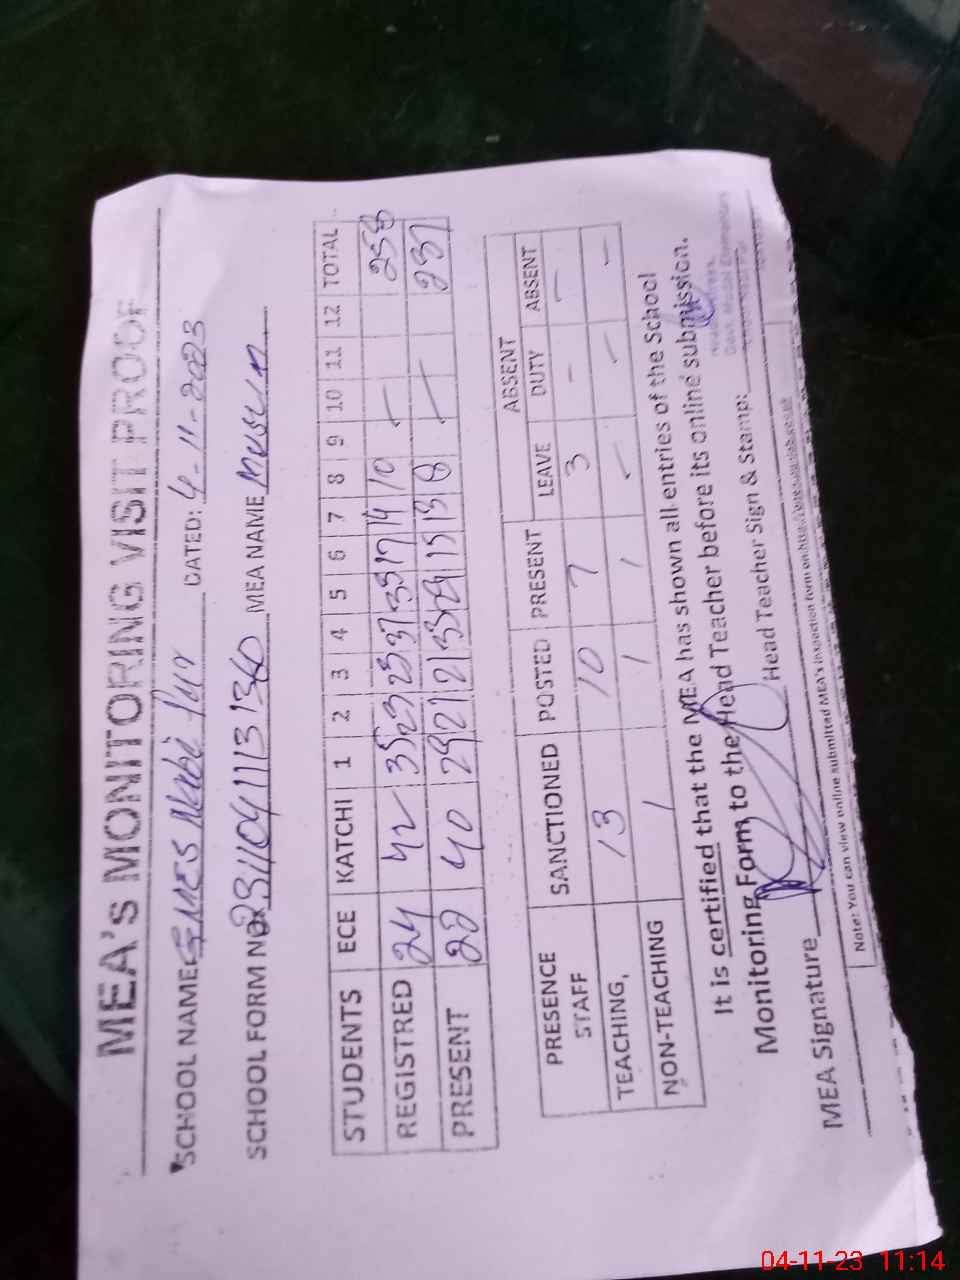 MEA's MONITORING VISIT PROOF
SCHOOL NAME GMES Nabi Pur DATED: 4-11-2023
SCHOOL FORM NO. MEA NAME
STUDENTS ECE KATCHI 1 2 3 4 5 6 7 8 9 10 11 12 TOTAL
REGISTRED 24 42 35 23 23 37 35 17 14 10 - 258
PRESENT 22 40 29 21 21 33 29 15 13 8 - 237
PRESENCE SANCTIONED POSTED PRESENT ABSENT
STAFF LEAVE DUTY ABSENT
TEACHING, 13 10 7 3 - -
NON-TEACHING 1 1 1 - - -
It is certified that the MEA has shown all entries of the School
Monitoring Form to the Head Teacher before its online submission.
MEA Signature Head Teacher Sign & Stamp:
Note: You can view online submitted MEA's inspection form on
04-11-23 11:14